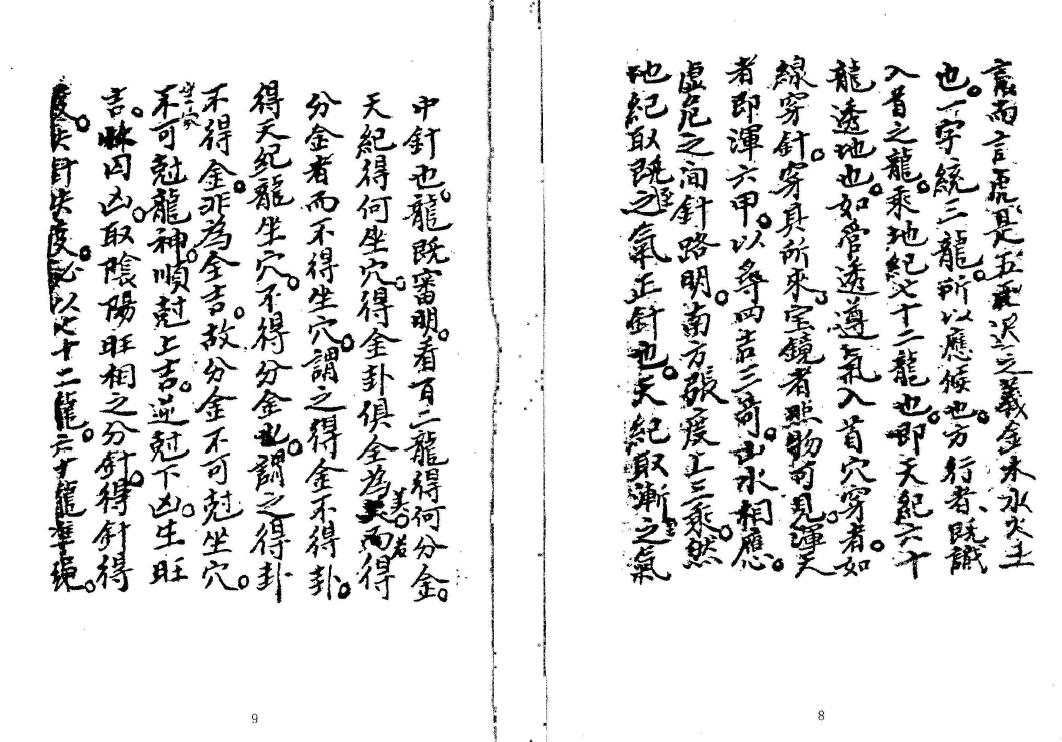 言而言虎是五之義金木水火土
也。一字統三龍。所以應候也。方行者、既識
入首之龍。乘地紀七十二龍也。即天紀六十
龍透地也。如管透遵氣入首穴穿者。如
線穿針。穿具所來。宝鏡者照物可見。渾天
者即渾六甲。以尋四吉三奇。山水相應。
虛危之间針路明。南方張度上三乘。然
地紀取既往之氣正針也。天紀取漸之氣
8
中針也。龍既審明。看百二龍得何分金。
天紀得何坐穴。得金卦俱全為美。若得
分金者而不得坐穴。謂之得金不得卦。
得天紀龍坐穴。不得分金。謂之得卦
不得金。非為全吉。故分金不可尅坐穴。
坐穴
不可尅龍神。順尅上吉。逆尅下凶。生旺
吉。囚凶。取陰陽旺相之分針。得針得
度失針失度。必以七十二龍。六十龍準繩。
9